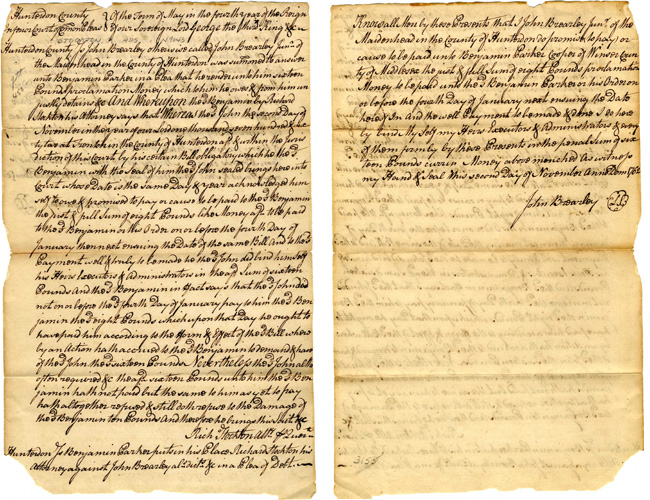 Hunterdon County
Inferiour Court of Common Pleas } Of the Term of May in the fourth year of the Reign
of our Sovereign Lord George the third King &c
Hunterdon County ss John Brearley otherwise called John Brearley Junr. of
the Maidenhead in the County of Hunterdon was summoned to answer
unto Benjamin Parker in a Plea that he render unto him sixteen
Pounds proclamation Money which to him he owes & from him un
justly detains &c And Whereupon the sd Benjamin by Richard
Stockton his Attorney says that Whereas the sd John the second Day of
November in the year of our Lord one thousand seven hundred &
at Trenton in the County of Hunterdon afsd & within the juris
diction of this Court by his certain Bill obligatory which he the sd
Benjamin with the Seal of him the sd John sealed brings here into
Court whose Date is the same Day & year acknowledged himself
to owe & promised to pay or cause to be paid to the sd Benjamin
the just & full Sum of eight Pounds like Money afsd to be paid
to the sd Benjamin or his Order on or before the fourth Day of
January then next ensuing the Date of the same Bill And to the sd
Payment well & truly to be made he the sd John did bind himself
his Heirs Executors & Administrators in the afsd Sum of sixteen
Pounds And the sd Benjamin in fact says that the sd John did
not on or before the sd fourth Day of January pay to him the sd Ben
jamin the sd eight Pounds which upon that Day he ought to
have paid him according to the Form & Effect of the sd Bill where
by an Action hath accrued to the sd Benjamin to demand & have
of the sd John the sd sixteen Pounds Nevertheless the sd John altho
often required &c the afsd sixteen Pounds unto him the sd Ben
jamin hath not paid but the same to him as yet to pay
hath altogether refused & still doth refuse to the Damage of
the sd Benjamin ten Pounds And therefore he brings this Suit &c
Rich Stockton Atty. for Quer
Hunterdon ss Benjamin Parker puts in his Place Richard Stockton his
Attorney against John Brearley als dict &c in a Plea of Debt
Know all Men by these Presents that I John Brearley Junr. of the
Maidenhead in the County of Hunterdon do promise to pay or
cause to be paid unto Benjamin Parker Cooper of Winsor County
of Middlesex the just & full Sum of eight Pounds proclamation
Money to be paid unto the sd Benjamin Parker or his Order on
or before the fourth Day of January next ensuing the Date
hereof And to the well Payment to be made & done I do here
by bind My Self my Heirs Executors & Administrators & every
of them firmly by these Presents in the penal Sum of six
teen Pounds Money above mentioned As witness
my Hand & Seal this second Day of November Anno Dom
John Brearley
3155